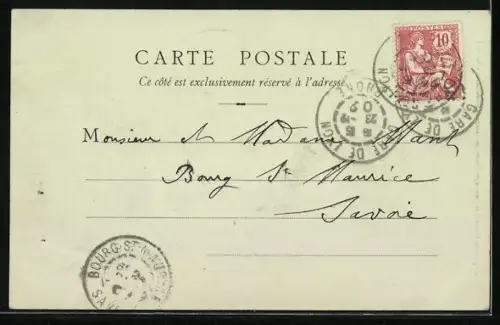 CARTE POSTALE
Ce côté est exclusivement réservé à l'adresse
Monsieur et Madame
Bourg St Maurice
Savoie
POSTES
10
GARE DE LYON
GARE DE LYON
02
BOURG-ST-MAURICE